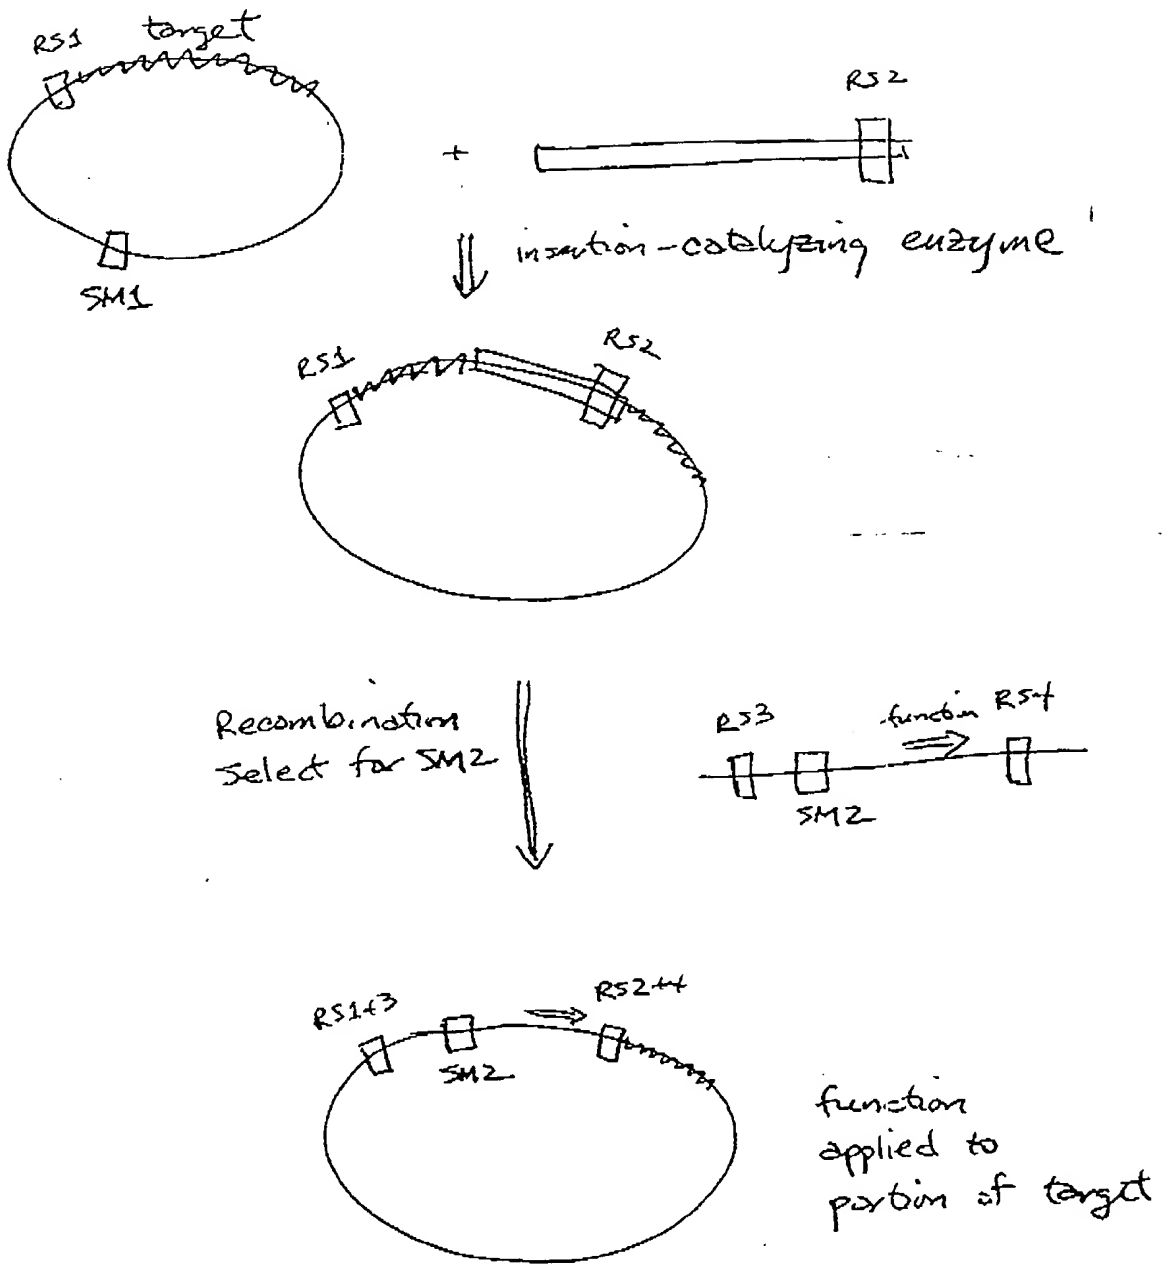 RS1 target
RS2
+
SM1
insertion-catalyzing enzyme
RS1
RS2
Recombination
Select for SM2
RS3
function RS4
SM2
RS1+3
RS2+4
SM2
function
applied to
portion of target